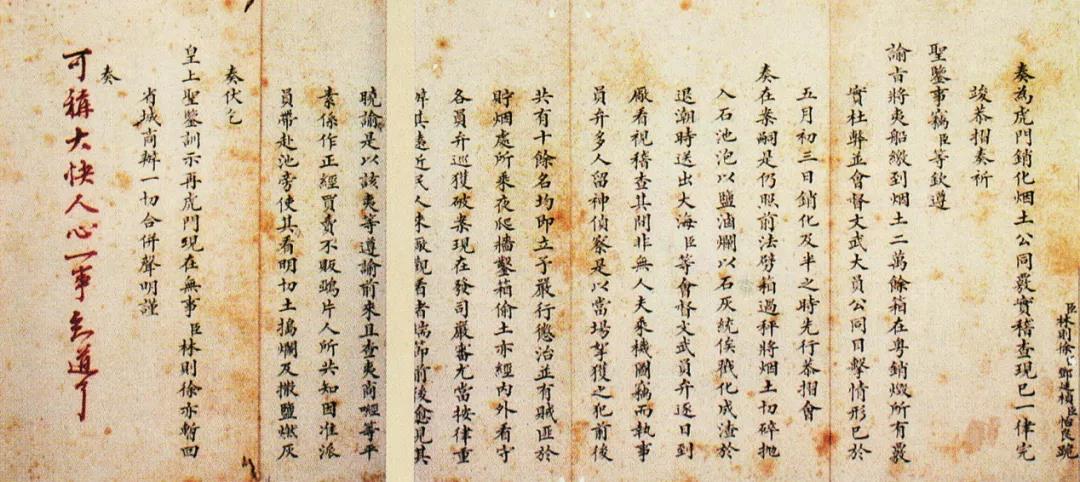 臣林則徐臣鄧廷楨臣怡良跪
奏為虎門銷化烟土公同覈實稽查現已一律完
竣恭摺奏祈
聖鑒事竊臣等欽遵
諭旨將夷船繳到烟土二萬餘箱在粵銷燬所有覈
實杜弊並會督文武大員公同目擊情形已於
五月初三日銷化及半之時先行恭摺會
奏在案嗣是仍照前法劈箱過秤將烟土切碎拋
入石池泡以鹽滷爛以石灰統俟戳化成渣於
退潮時送出大海臣等會督文武員弁逐日到
廠看視稽查其間非無人夫乘機圖竊而執事
員弁多人留神偵察是以當場拏獲之犯前後
共有十餘名均即立予嚴行懲治並有賊匪於
貯烟處所乘夜爬墻鑿箱偷土亦經內外看守
各員弁巡獲破案現在發司嚴審尤當按律重
辦其遠近民人來廠觀看者端節前後愈見其
曉諭是以該夷等遵諭前來且查夷商等平
素係作正經買賣不販鴉片人所共知因准派
員帶赴池旁使其看明切土搗爛及撒鹽燃灰
奏伏乞
皇上聖鑒訓示再虎門現在無事臣林則徐亦暫回
省城商辦一切合併聲明謹
奏
可稱大快人心一事知道了